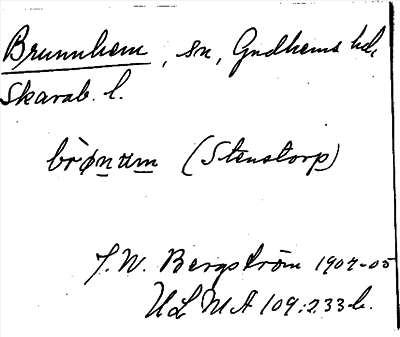 Brunnhem, sn, Gudhems hd,
Skarab. l.
brø̀nɯm (Stenstorp)
J. W. Bergström 1904-05
ULMA 109:233 b.